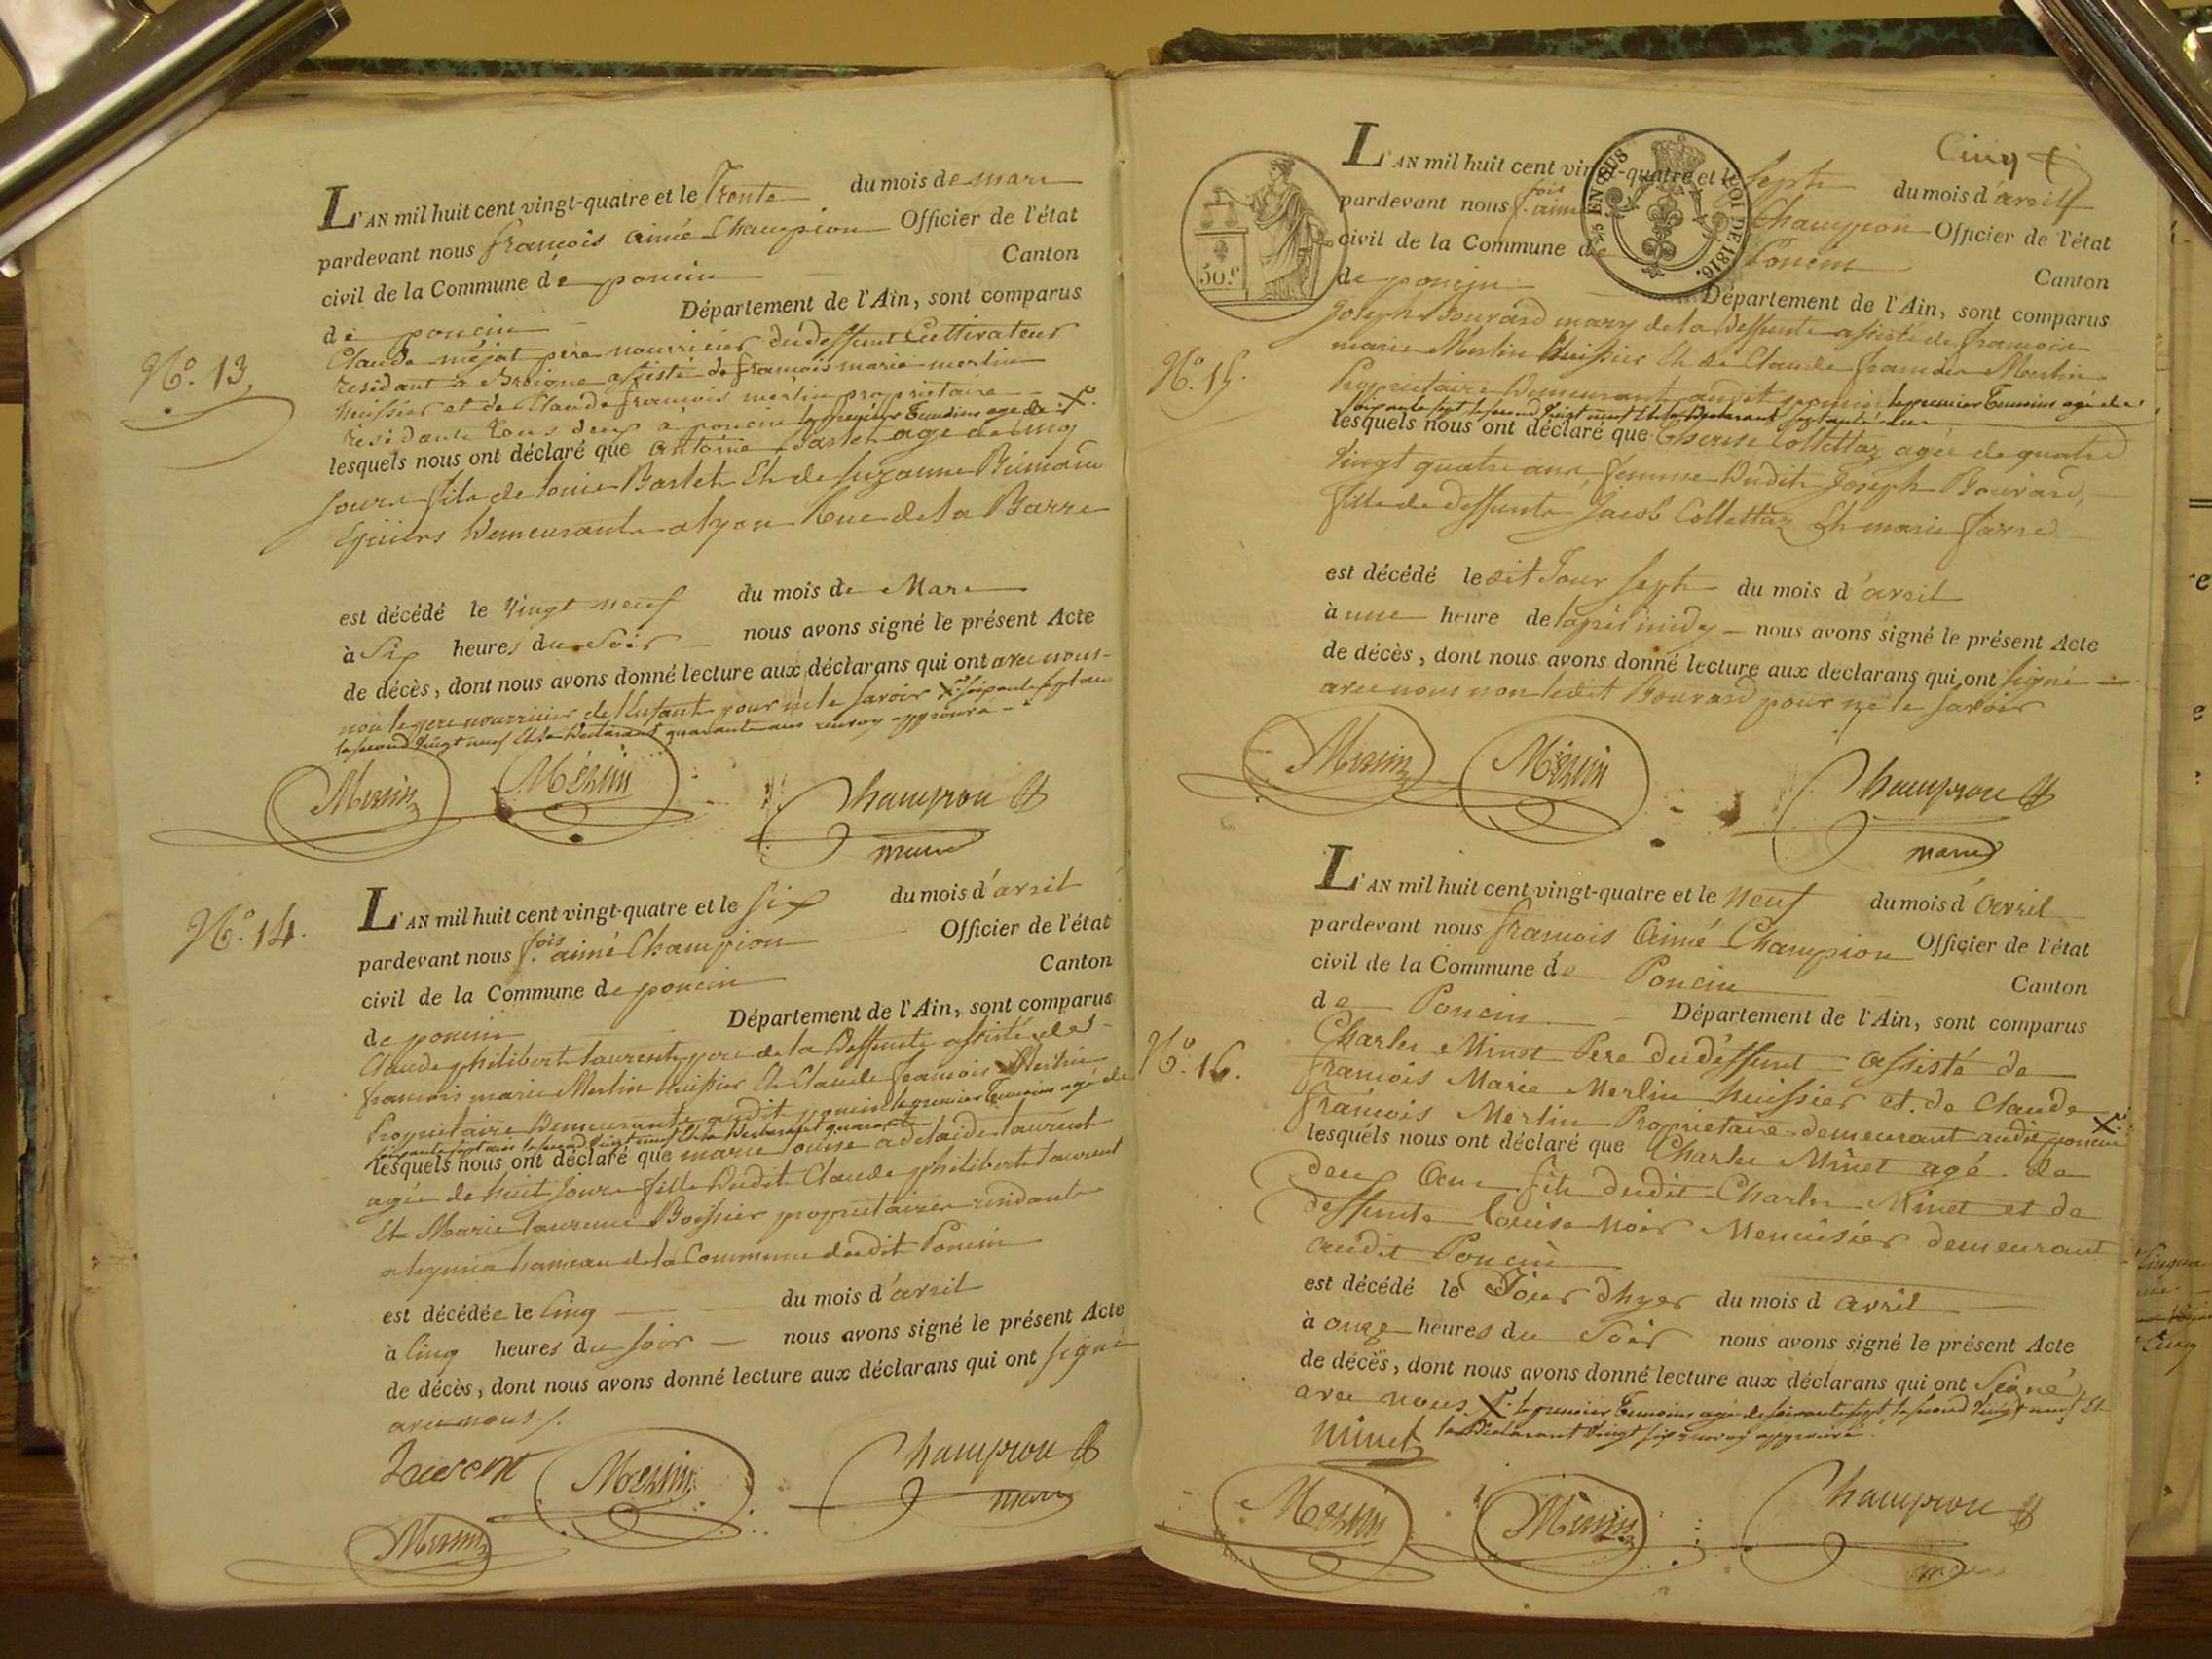 L'AN mil huit cent vingt-quatre et le Trente du mois de mars
pardevant nous françois aimé Champion Officier de l'état
civil de la Commune de poncin Canton
de poncin Département de l'Ain, sont comparus
N.° 13.
Claude méjat père nourricier du deffunt Cultivateur
résidant a Breigne assisté de françois marie merlin
huissier et de Claude françois merlin propriétaire
résidants tous deux a poncin le premier Temoins agé de X.
lesquels nous ont déclaré que antoine Bartet agé de cinq
jours fils de louis Bartet Et de suzanne
demeurants a lyon Rue de la Barre
est décédé le vingt neuf du mois de Mars
à six heures du soir nous avons signé le présent Acte
de décès, dont nous avons donné lecture aux déclarans qui ont avec nous
non le père nourricier de l'Enfant pour ne le savoir X. soixante sept ans
le second vingt neuf Et le declarant quarante ans renvoy approuvé
Merlin Merlin Champion
maire
N.° 14.
L'AN mil huit cent vingt-quatre et le six du mois d'avril
pardevant nous f.ois aimé Champion Officier de l'état
civil de la Commune de poncin Canton
de poncin Département de l'Ain, sont comparus
Claude philibert laurent pere de la deffunte assisté des
francois marie Merlin huissier Et Claude francois Merlin
Proprietaire Demeurants audit poncin le premier Temoins agé de
soixante sept ans le second vingt neuf Et le declarant quarante
lesquels nous ont déclaré que marie louise adelaide laurent
agée de huit jours fille dudit Claude philibert laurent
Et Marie laurence Boissier proprietaires residants
a leymia hameau de la Commune dudit Poncin
est décédée le cinq du mois d'avril
à cinq heures du soir nous avons signé le présent Acte
de décès, dont nous avons donné lecture aux déclarans qui ont signé
avec nous ./.
Laurent Merlin Champion
maire
Merlin
Cinq
50.c
EN SUS LOI DE 1816.
L'AN mil huit cent vingt-quatre et le sept du mois d'avril
pardevant nous f.ois aimé Champion Officier de l'état
civil de la Commune de Poncin Canton
de poncin Département de l'Ain, sont comparus
N.° 15.
Joseph Bouvard mary de la deffunte assisté de francois
marie Merlin huissier Et de Claude francois Merlin
Proprietaire Demeurant audit poncin le premier Temoins agé de
soixante sept le second vingt neuf Et le declarant
lesquels nous ont déclaré que Therese Collettaz agée de quatre
vingt quatre ans, femme dudit Joseph Bouvard,
fille de deffunts Jacob Collettaz Et marie favre
est décédé le dit Jour sept du mois d'avril
à une heure de l'après midy nous avons signé le présent Acte
de décès, dont nous avons donné lecture aux declarans qui ont signé
avec nous non ledit Bouvard pour ne le savoir
Merlin Merlin Champion
maire
L'AN mil huit cent vingt-quatre et le neuf du mois d'avril
pardevant nous francois Aimé Champion Officier de l'état
civil de la Commune de Poncin Canton
de Poncin Département de l'Ain, sont comparus
N.° 16.
Charles Minet Pere du déffunt assisté de
francois Marie Merlin huissier et de Claude
francois Merlin Proprietaire demeurant audit poncin X.
lesquels nous ont déclaré que Charles Minet agé de
deux ans fils dudit Charles Minet et de
deffunte louise noir Menuisier demeurant
audit Poncin
est décédé le Jour dhyer du mois d avril
à onze heures du soir nous avons signé le présent Acte
de décès, dont nous avons donné lecture aux déclarans qui ont Signé
avec nous X. le premier Temoins agé de soixante sept le second vingt neuf Et
le declarant vingt six renvoy approuvé.
minet
Merlin Merlin Champion